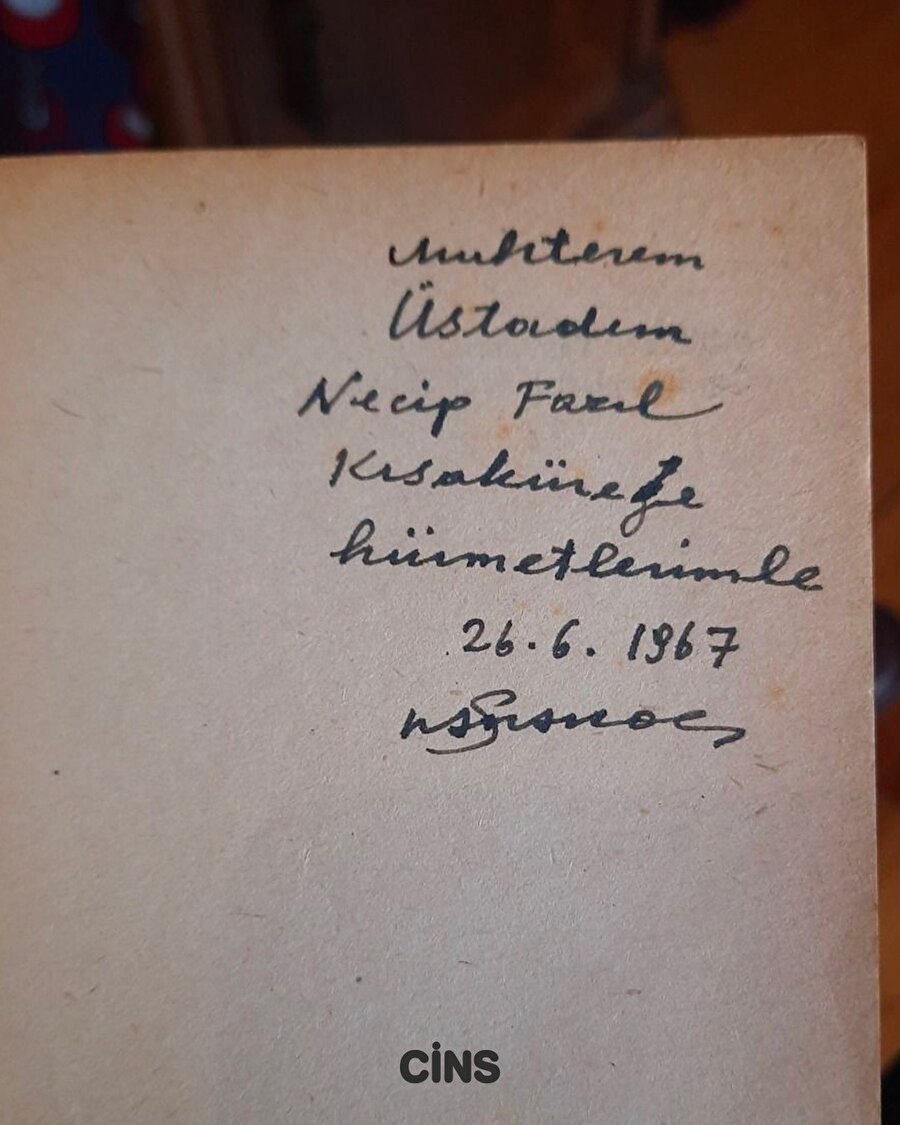 Muhterem
Üstadım
Necip Fazıl
Kısaküreğe
hürmetlerimle
26.6.1967
CİNS